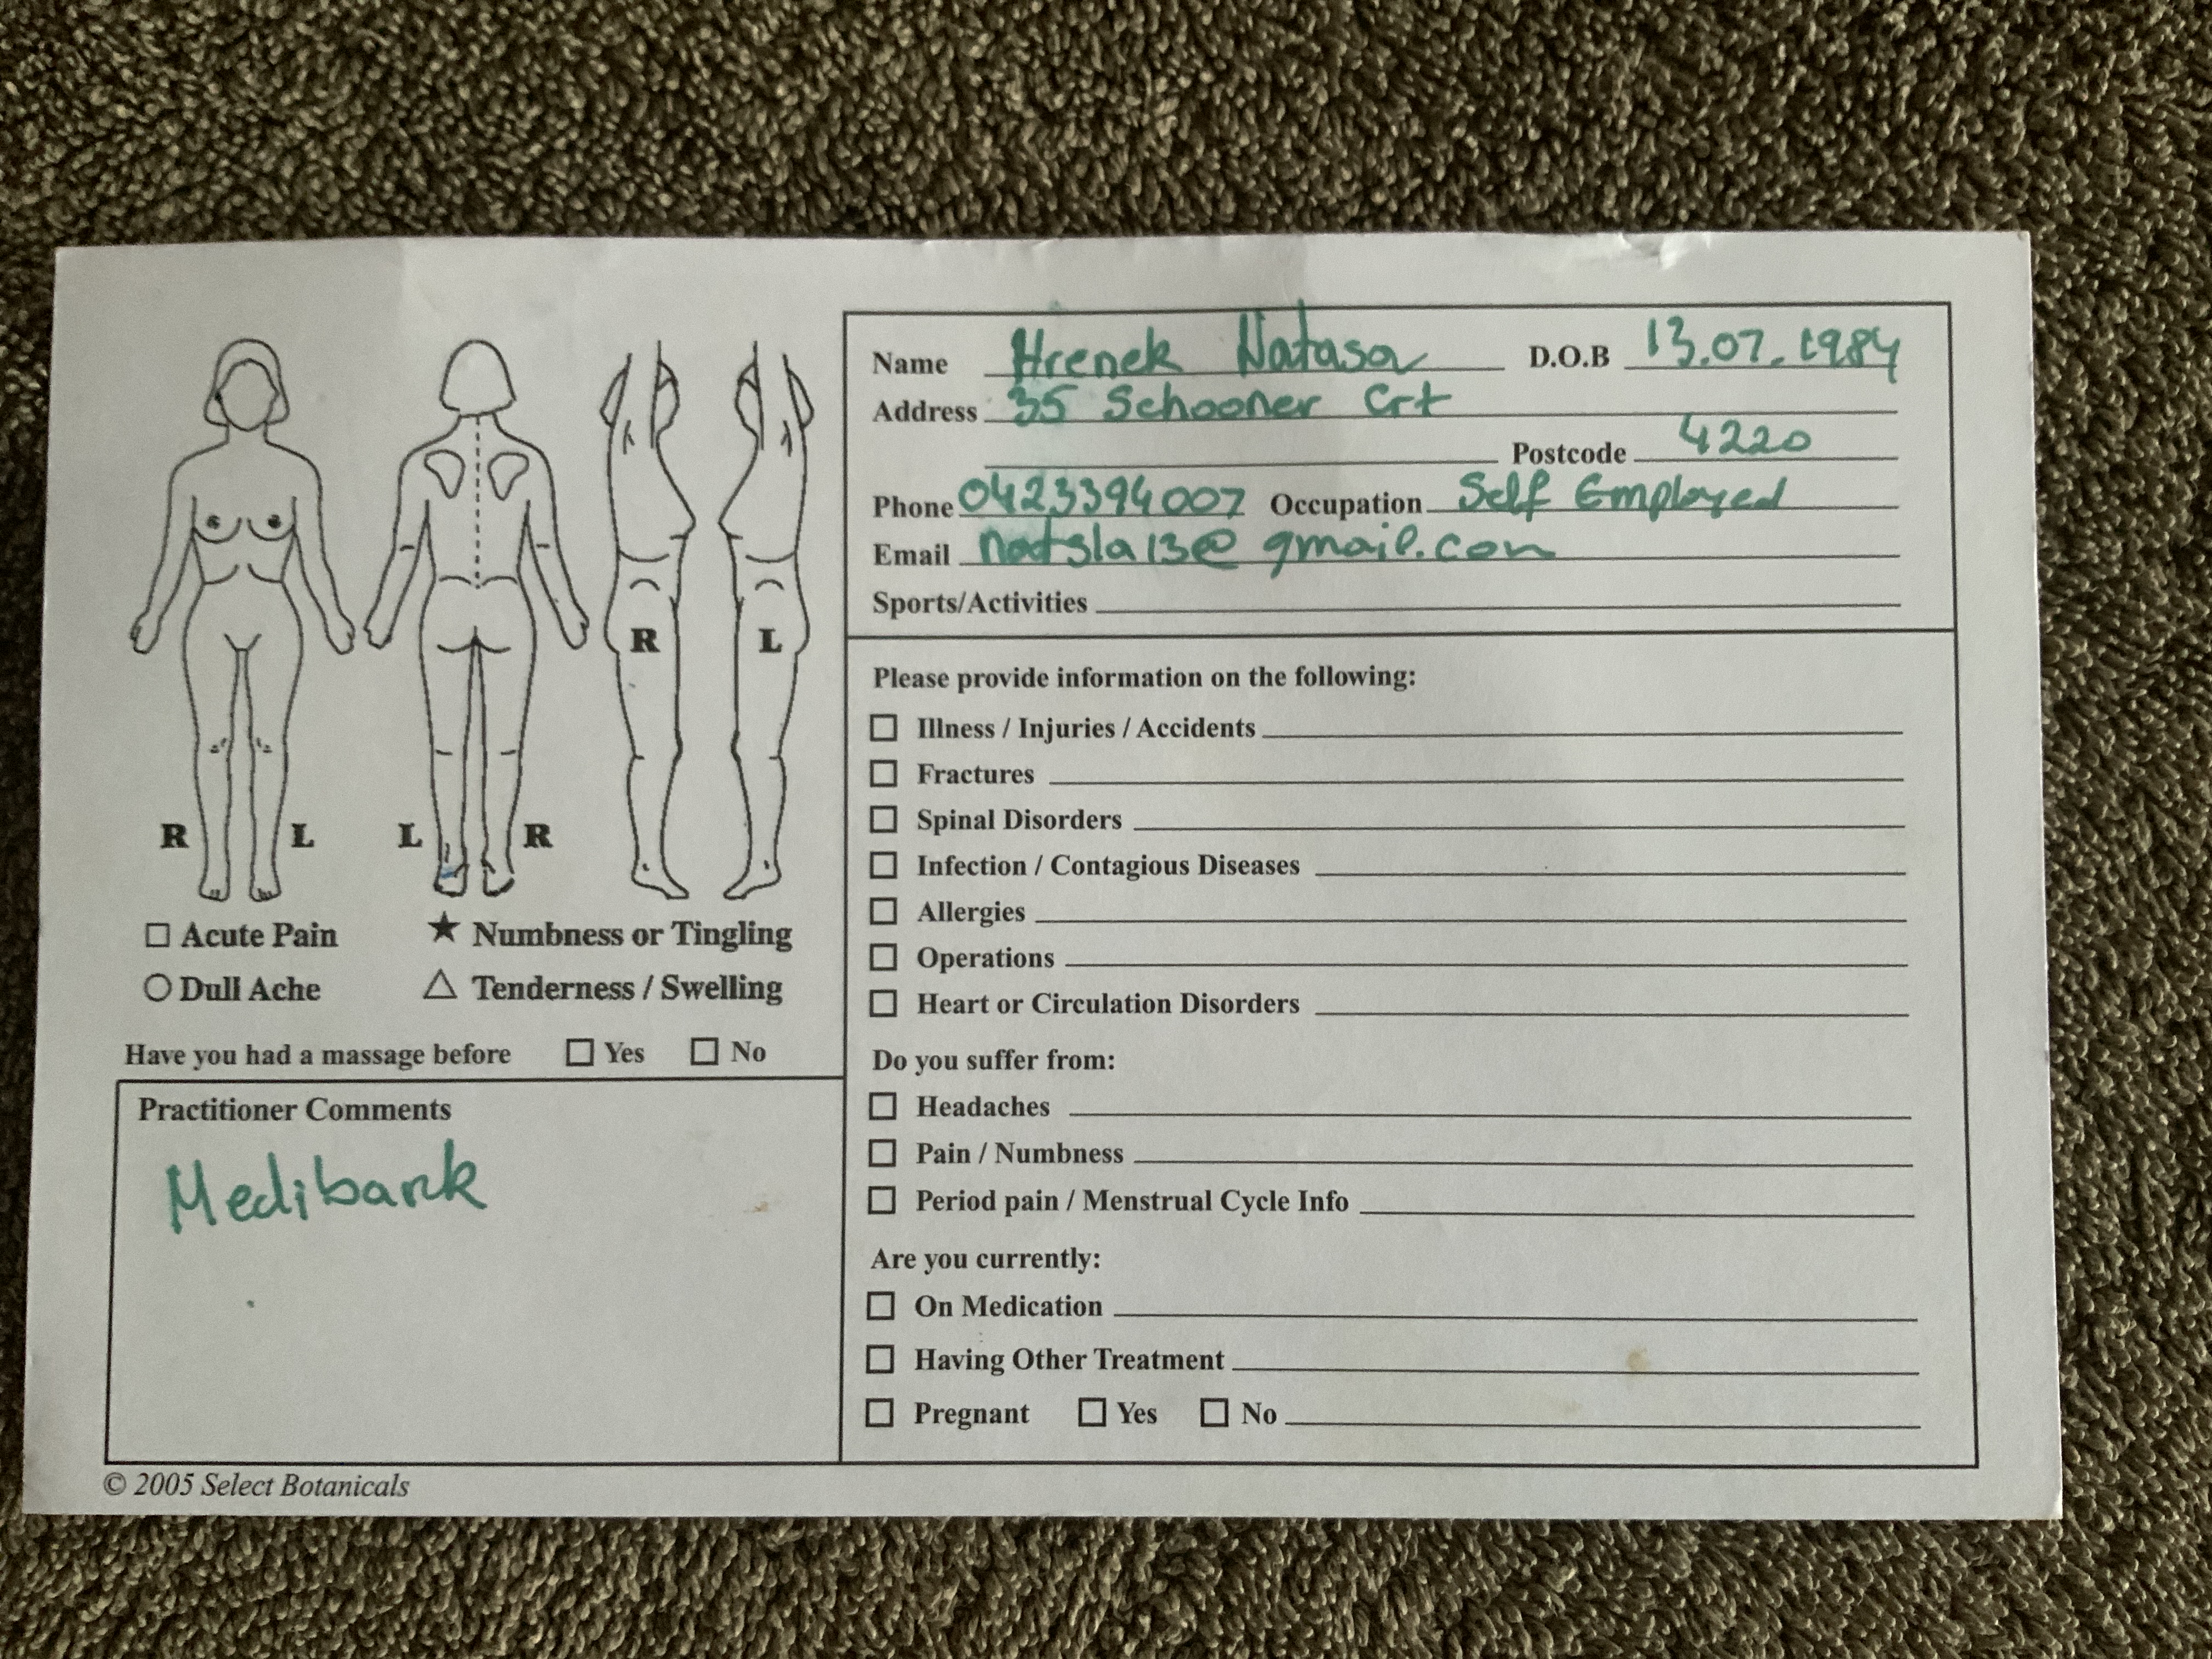 R L L R R L
□ Acute Pain ★ Numbness or Tingling
○ Dull Ache △ Tenderness / Swelling
Have you had a massage before □ Yes □ No
Practitioner Comments
Medibank
© 2005 Select Botanicals
Name Hrenek Natasa D.O.B 13.07.1984
Address 35 Schooner Crt
Postcode 4220
Phone 0423394007 Occupation Self Employed
Email @gmail.com
Sports/Activities
Please provide information on the following:
□ Illness / Injuries / Accidents
□ Fractures
□ Spinal Disorders
□ Infection / Contagious Diseases
□ Allergies
□ Operations
□ Heart or Circulation Disorders
Do you suffer from:
□ Headaches
□ Pain / Numbness
□ Period pain / Menstrual Cycle Info
Are you currently:
□ On Medication
□ Having Other Treatment
□ Pregnant □ Yes □ No